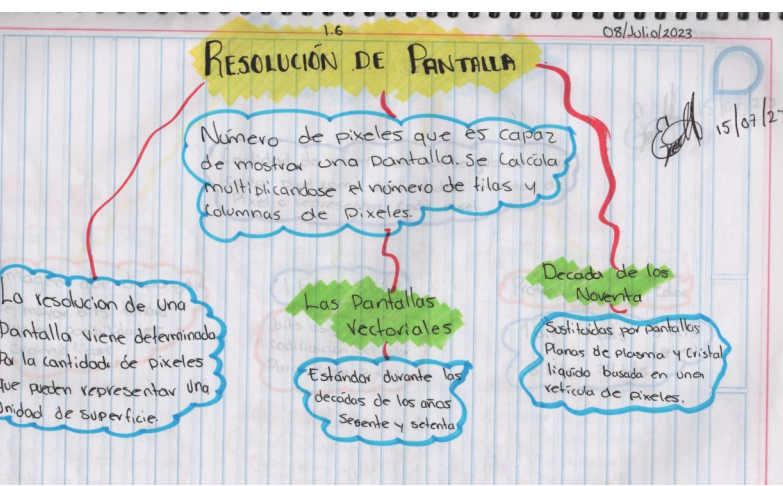 1.6
08/Julio/2023
RESOLUCIÓN DE PANTALLA
15/07/2
Número de pixeles que es capaz
de mostrar una pantalla. Se Calcula
multiplicándose el número de filas y
Columnas de Pixeles.
La resolucion de una
Pantalla viene determinada
Por la cantidad de pixeles
que pueden representar una
Unidad de superficie.
Las Pantallas
Vectoriales
Estándar durante las
decadas de los años
Sesente y setenta
Decada de los
Noventa
Sustituidas por pantallas
Planas de plasma y Cristal
liquido busada en una
retícula de pixeles.